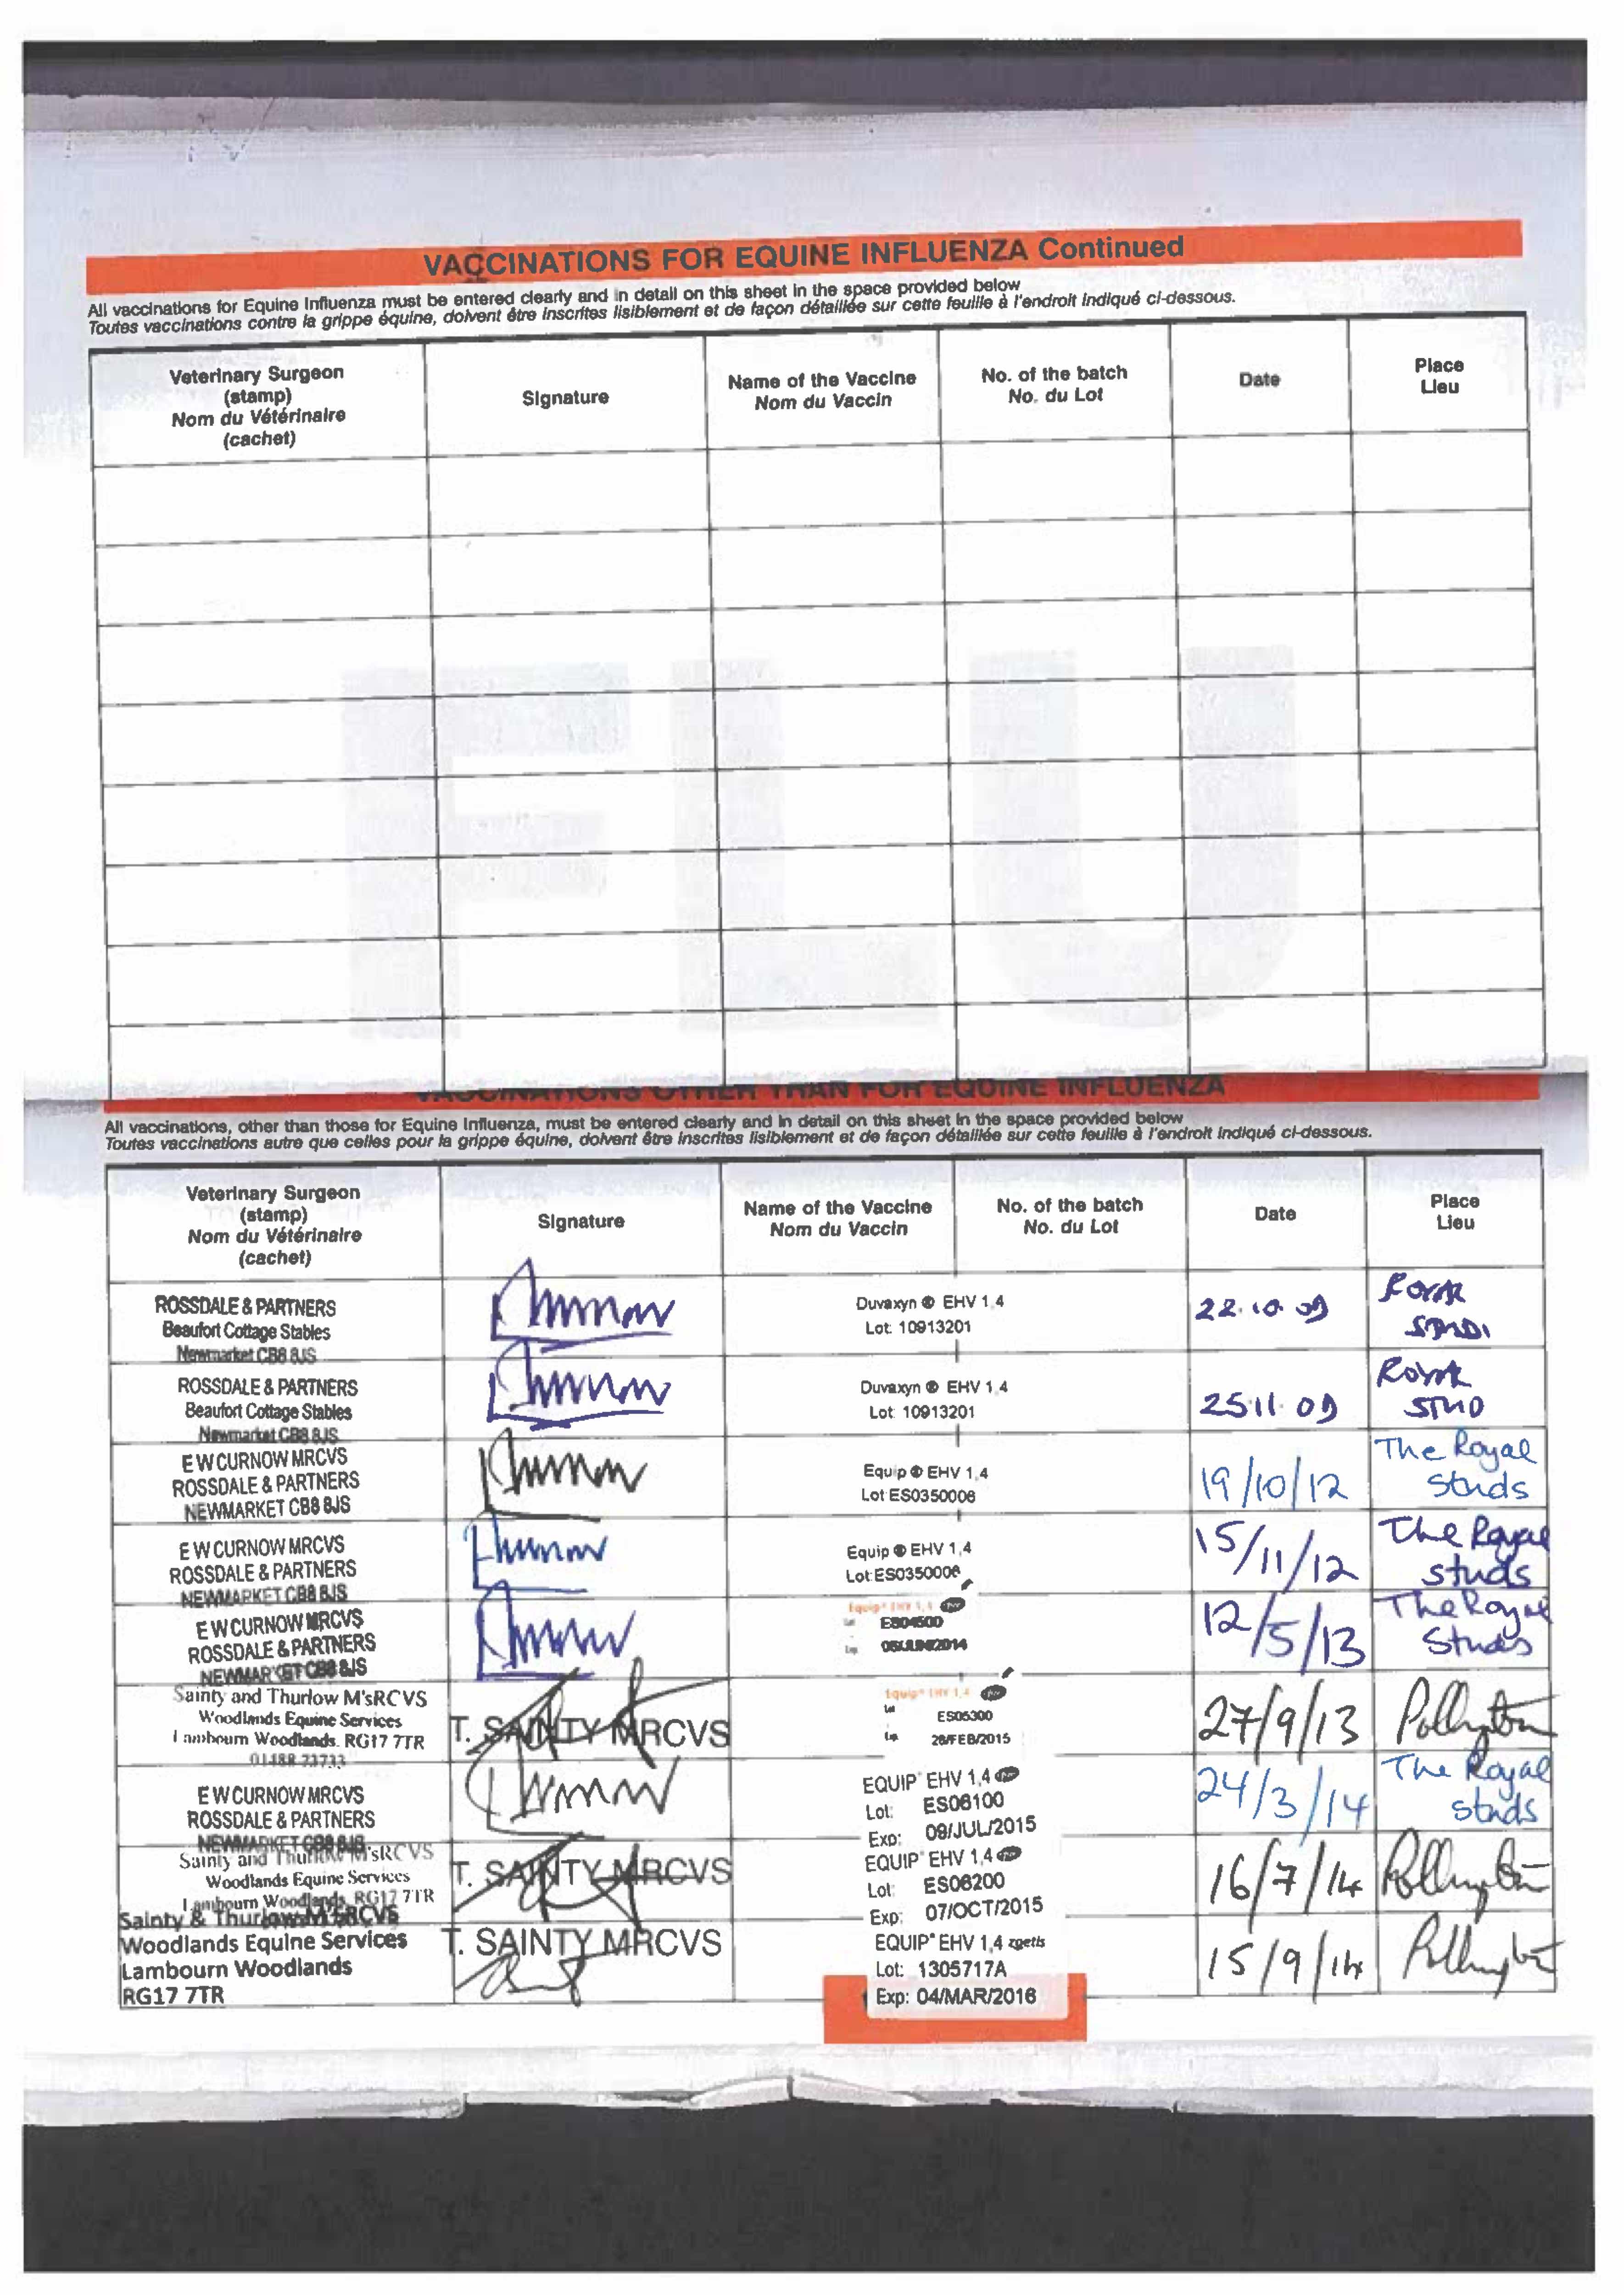 VACCINATIONS FOR EQUINE INFLUENZA Continued
All vaccinations for Equine Influenza must be entered clearly and in detail on this sheet in the space provided below
Toutes vaccinations contre la grippe équine, doivent être inscrites lisiblement et de façon détaillée sur cette feuille à l'endroit indiqué ci-dessous.
Veterinary Surgeon
(stamp)
Nom du Vétérinaire
(cachet)
Signature
Name of the Vaccine
Nom du Vaccin
No. of the batch
No. du Lot
Date
Place
Lieu
FLU
VACCINATIONS OTHER THAN FOR EQUINE INFLUENZA
All vaccinations, other than those for Equine Influenza, must be entered clearly and in detail on this sheet in the space provided below
Toutes vaccinations autre que celles pour la grippe équine, doivent être inscrites lisiblement et de façon détaillée sur cette feuille à l'endroit indiqué ci-dessous.
Veterinary Surgeon
(stamp)
Nom du Vétérinaire
(cachet)
Signature
Name of the Vaccine
Nom du Vaccin
No. of the batch
No. du Lot
Date
Place
Lieu
ROSSDALE & PARTNERS
Beaufort Cottage Stables
Newmarket CB8 8JS
Duvaxyn ® EHV 1,4
Lot: 10913201
22.10.09
ROSSDALE & PARTNERS
Beaufort Cottage Stables
Newmarket CB8 8JS
Duvaxyn ® EHV 1,4
Lot: 10913201
25.11.09
STUD
E W CURNOW MRCVS
ROSSDALE & PARTNERS
NEWMARKET CB8 8JS
Equip ® EHV 1,4
Lot ES0350006
19/10/12
The Royal
Studs
E W CURNOW MRCVS
ROSSDALE & PARTNERS
NEWMARKET CB8 8JS
Equip ® EHV 1,4
Lot:ES0350006
15/11/12
The Royal
studs
E W CURNOW MRCVS
ROSSDALE & PARTNERS
NEWMARKET CB8 8JS
Equip® EHV 1,4
Lot ES04500
2014
12/5/13
The Royal
Studs
Sainty and Thurlow M'sRCVS
Woodlands Equine Services
Lambourn Woodlands. RG17 7TR
01488 73733
T. SAINTY MRCVS
Equip® EHV 1,4
Lot ES05300
Exp 28/FEB/2015
27/9/13
Pollington
E W CURNOW MRCVS
ROSSDALE & PARTNERS
NEWMARKET CB8 8JS
EQUIP® EHV 1,4
Lot: ES06100
Exp: 09/JUL/2015
24/3/14
The Royal
Studs
Sainty and Thurlow M'sRCVS
Woodlands Equine Services
Lambourn Woodlands. RG17 7TR
T. SAINTY MRCVS
EQUIP® EHV 1,4
Lot: ES06200
Exp: 07/OCT/2015
16/7/14
Pollington
Sainty & Thurlow M'SRCVS
Woodlands Equine Services
Lambourn Woodlands
RG17 7TR
T. SAINTY MRCVS
EQUIP® EHV 1,4 zoetis
Lot: 1305717A
Exp: 04/MAR/2016
15/9/14
Pollington